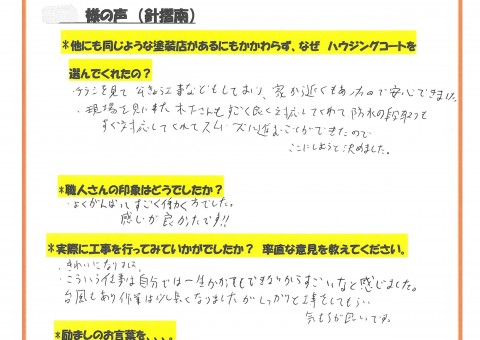 様の声（針摺南）
*他にも同じような塗装店があるにもかかわらず、なぜ ハウジングコートを
選んでくれたの？
・チラシを見て 公きょう工事などもしており、家が近くもあったので安心できました。
・現場を見に来た木下さんもすごく良く対応してくれて防水の段取りも
すぐ対応してくれてスムーズに進むことができたので
ここにしようと決めました。
*職人さんの印象はどうでしたか？
・よくがんばってすごく働く方でした。
感じが良かったです!!
*実際に工事を行ってみていかがでしたか？ 率直な意見を教えてください。
・きれいになりました。
・こういう仕事は自分では一生かかってもできないからすごいなと感じました。
台風もあり作業は少し長くなりましたがしっかりと工事をしてもらい
気もちが良いです。
*励ましのお言葉を、、、。